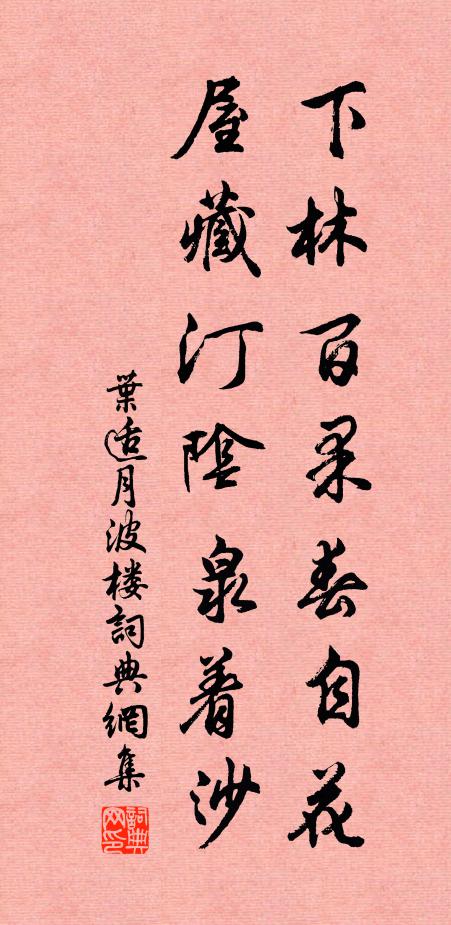 下林百果春自花
屋藏汀陰泉着沙
葉适月波楼詞典網集
詞典网印